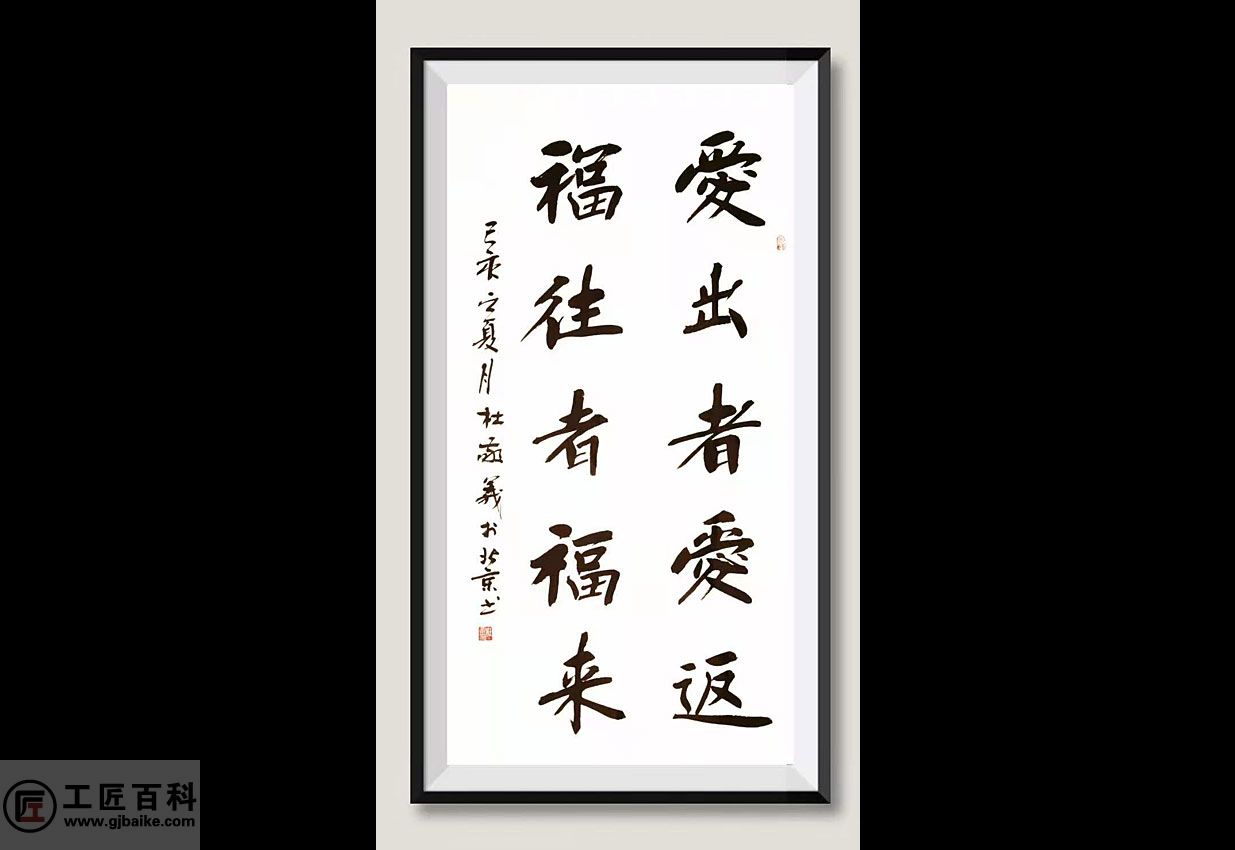 愛出者愛返
福往者福来
己亥之夏月杜家義於北京书
工匠百科
www.gjbaike.com